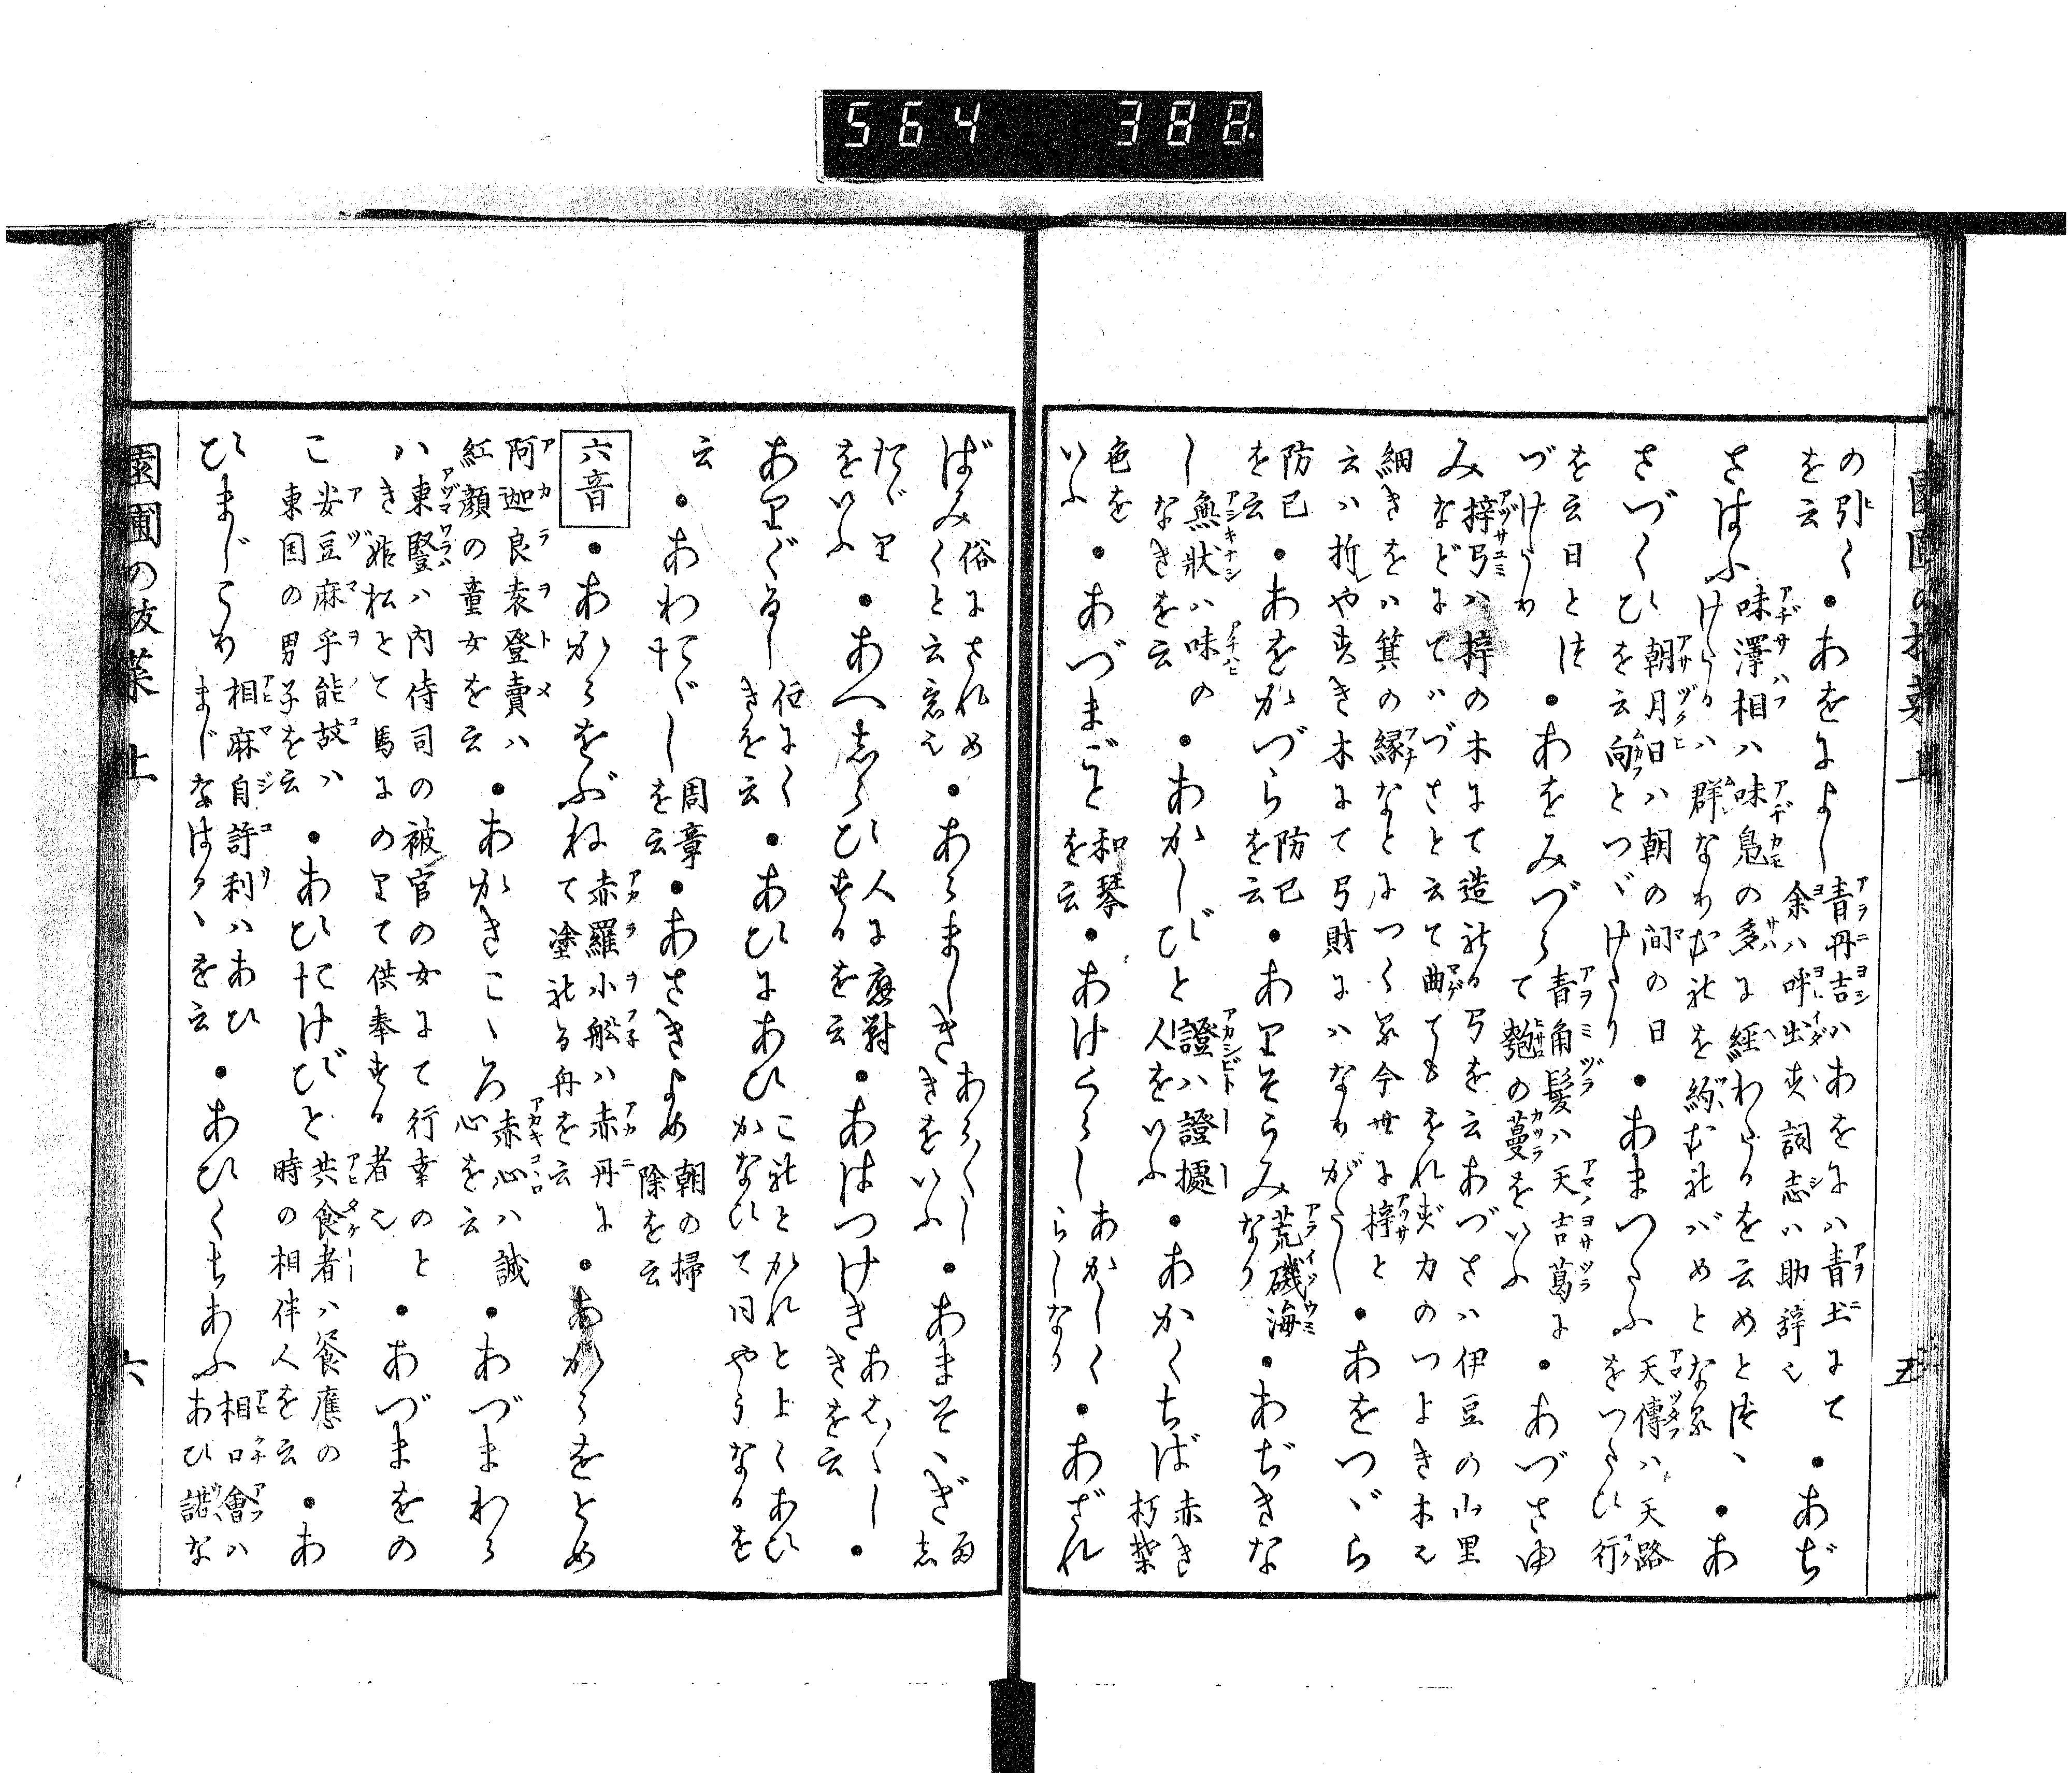 564 388.
園圃の抜菜 上 五
の引く●あをによし青丹吉ハあをにハ青土にて●あぢ
を云 余ハ呼出す詞志ハ助辞也
さはふ味澤相ハ味鳧の多に経わたるを云めとは、●あ
けらるハ群なりむれを約むればめとなる
さづくひ朝月日ハ朝の間の日●あまつたふ天傳ハ天路
を云向とつゞけたり をつたひ行
を云日とは●あをみづら青角髪ハ天吉葛に●あづさゆ
づけたり て匏の蔓をいふ
み梓弓ハ梓の木にて造れる弓を云あづさハ伊豆の山里
などにてハづさと云て曲てもをれず力のつよき木也
細きをハ箕の縁なとにつくる今世に梓と●あをつゞら
云ハ折れやすき木にて弓財にハなりがたし
防已●あをかづら防已●ありそうみ荒磯海●あぢきな
を云 を云 なり
し無状ハ味の●あかしびと證ハ證據●あかくちば赤き
なきを云 人をいふ 朽葉
色を●あづまごと和琴●あけくらしあかしく●あざれ
いふ を云 らしなり
ばみ俗にされめ●あらましきあら〱し●あまそゝぎ雨
くと云意也 きをいふ 志
たゞり●あへしらひ人に應對●あはつけきあは〱し●
をいふ するを云 きを云
ありぐるし 住にく●あひにあひこれとかれとよくあひ
きを云 かなひて同やうなるを
云●あわたゞし周章●あさきよめ朝の掃
を云 除を云
六音●あからをぶね赤羅小舩ハ赤丹に●あからをとめ
て塗れる舟を云
阿迦良袁登賣ハ●あかきこゝろ赤心ハ誠●あづまわら
紅顔の童女を云 心を云
ハ東豎ハ内侍司の被官の女にて行幸のと●あづまをの
き姫松とて馬にのりて供奉する者也
こ安豆麻乎能故ハ●あひたげびと共食者ハ饗應の●あ
東国の男子を云 時の相伴人を云
ひまじこり相麻自許利ハあひ●あひくちあふ相口會ハ
まじなはるゝを云 あひ諾な
園圃の抜菜 上 六